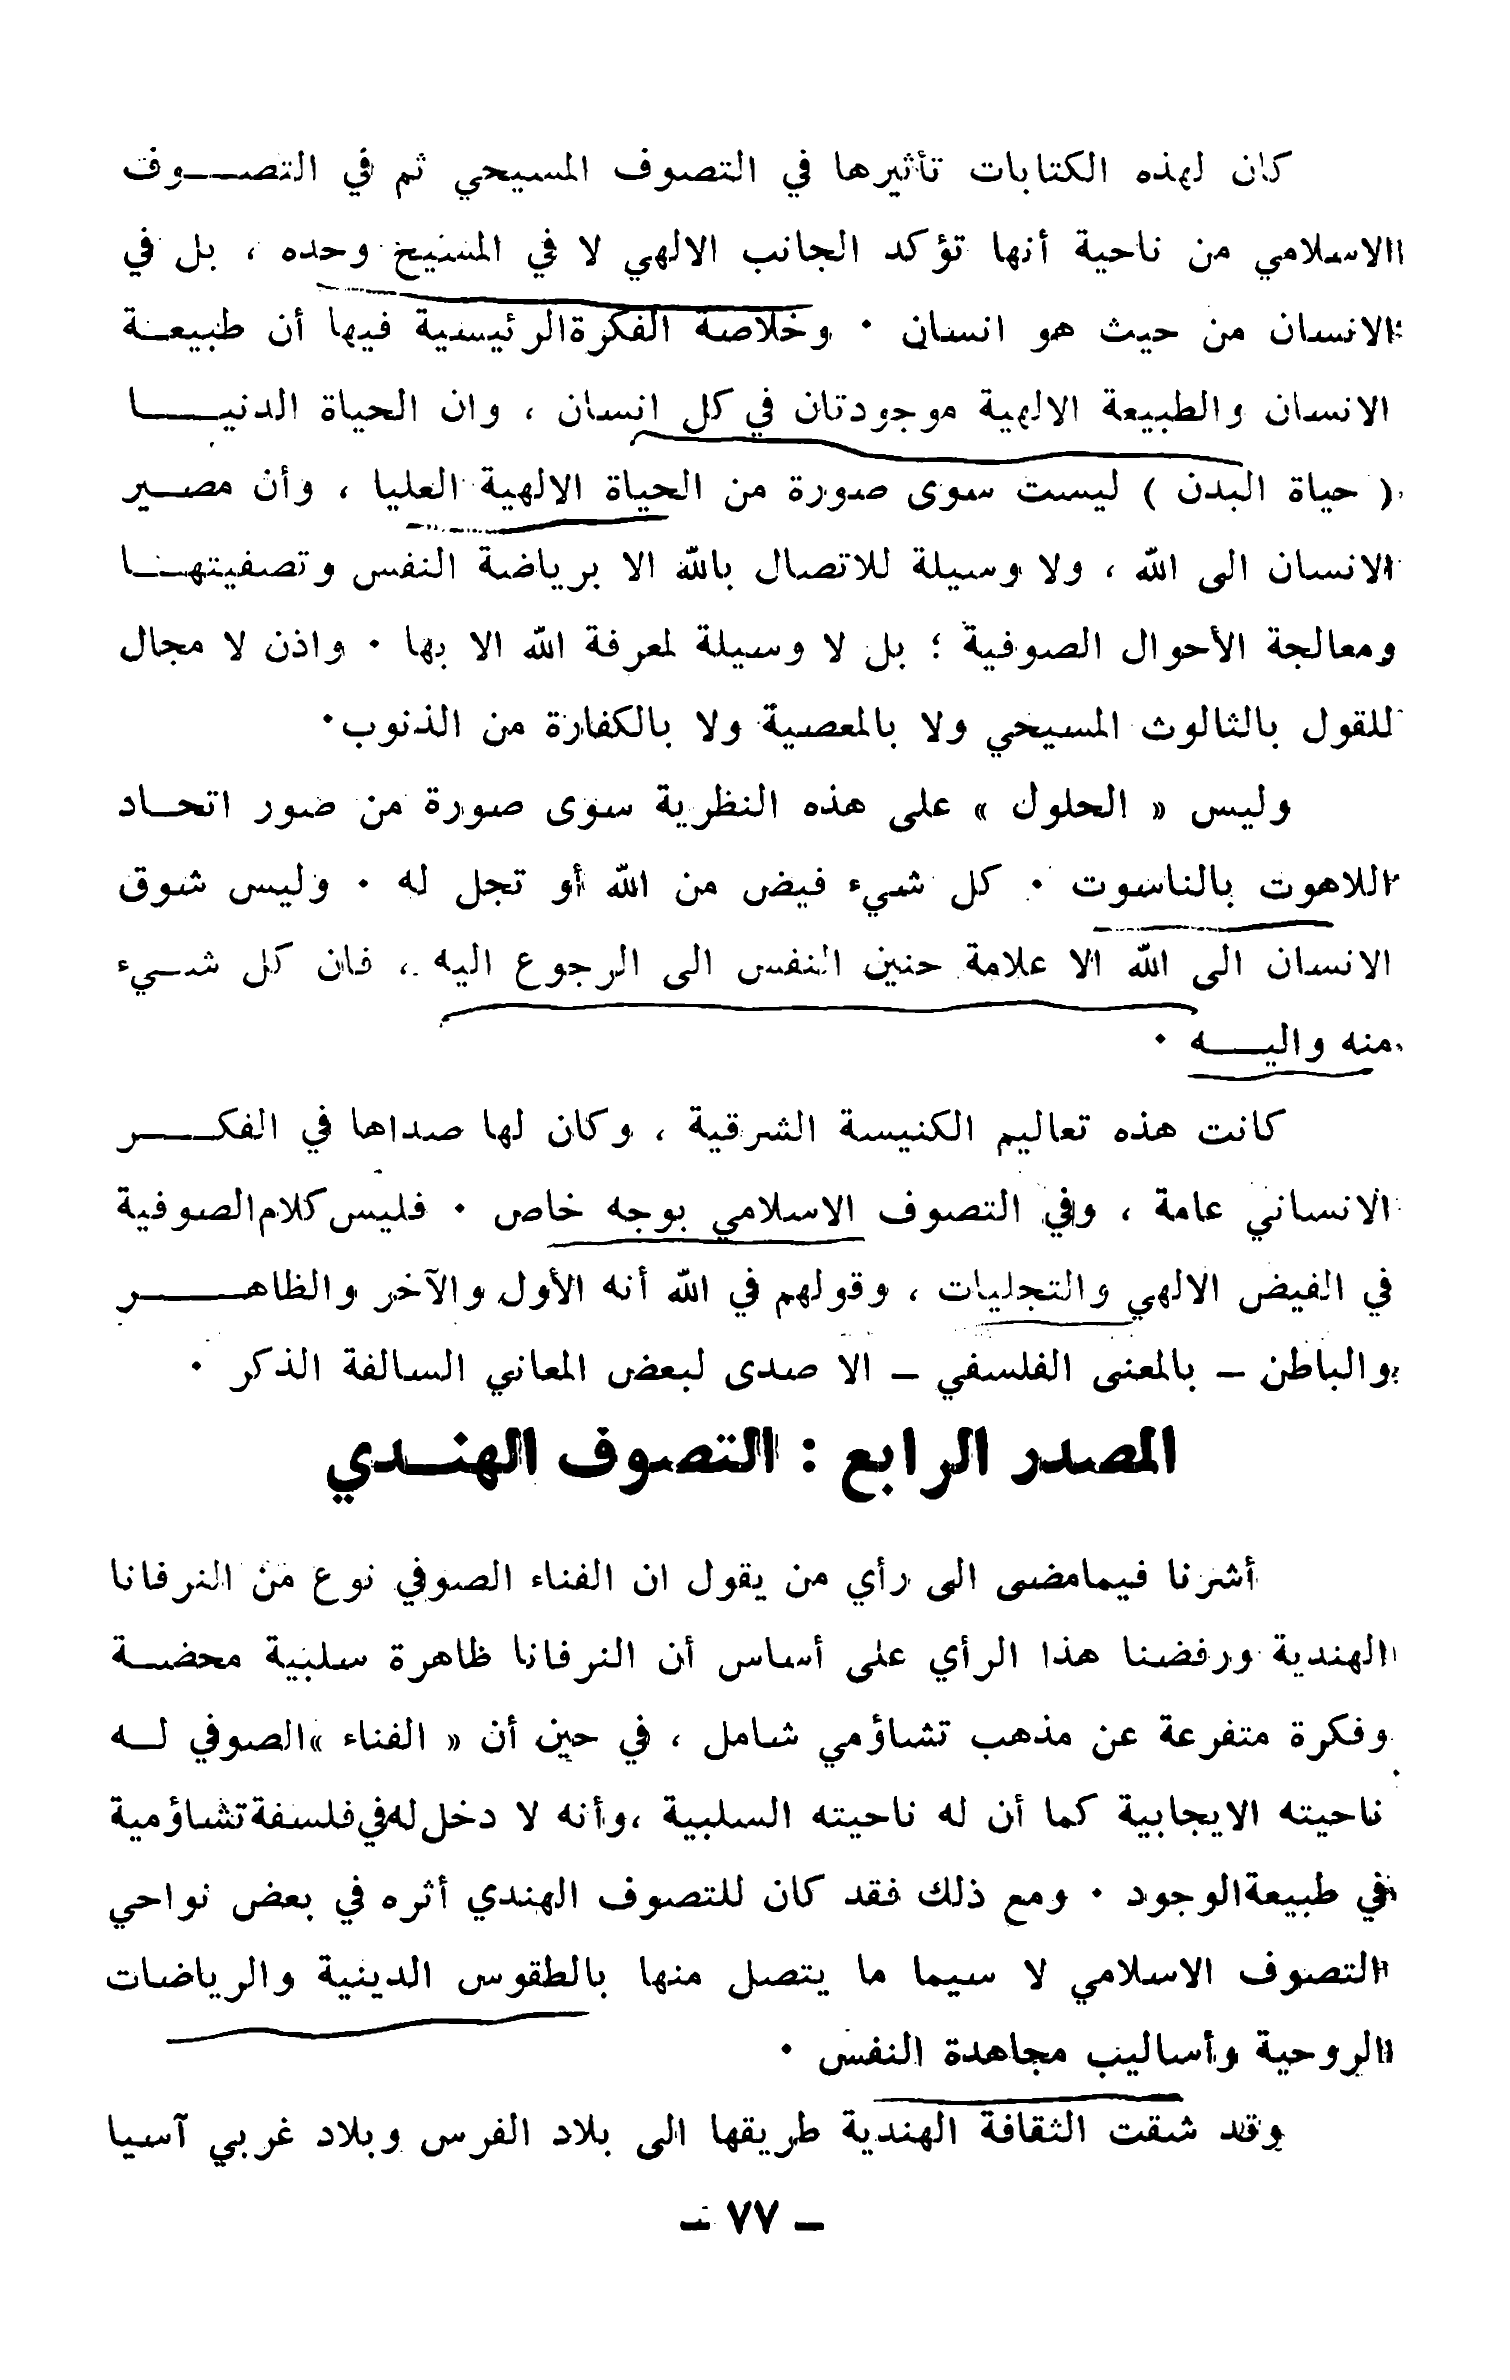 كان لهذه الكتابات تأثيرها في التصوف المسيحي ثم في التصـــوف
الاسلامي من ناحية أنها تؤكد الجانب الالهي لا في المسيح وحده ، بل في
الانسان من حيث هو انسان ٠ وخلاصة الفكرة الرئيسية فيها أن طبيعـة
الانسان والطبيعة الالهية موجودتان في كل انسان ، وان الحياة الدنيـــا
( حياة البدن ) ليست سوى صورة من الحياة الالهية العليا ، وأن مصـير
الانسان الى الله ، ولا وسيلة للاتصال بالله الا برياضة النفس وتصفيتهـا
ومعالجة الأحوال الصوفية ؛ بل لا وسيلة لمعرفة الله الا بها ٠ واذن لا مجال
للقول بالثالوث المسيحي ولا بالمعصية ولا بالكفارة من الذنوب٠
وليس « الحلول » على هذه النظرية سوى صورة من صور اتحـاد
اللاهوت بالناسوت ٠ كل شيء فيض من الله أو تجل له ٠ وليس شوق
الانسان الى الله الا علامة حنين النفس الى الرجوع اليه ، فان كل شـيء
منه واليـــه ٠
كانت هذه تعاليم الكنيسة الشرقية ، وكان لها صداها في الفكـــر
الانساني عامة ، وفي التصوف الاسلامي بوجه خاص ٠ فليس كلام الصوفية
في الفيض الالهي والتجليات ، وقولهم في الله أنه الأول والآخر والظاهـــر
والباطن – بالمعنى الفلسفي – الا صدى لبعض المعاني السالفة الذكر ٠
المصدر الرابع : التصوف الهنـدي
أشرنا فيمامضى الى رأي من يقول ان الفناء الصوفي نوع من النرفانا
الهندية ورفضنا هذا الرأي على أساس أن النرفانا ظاهرة سلبية محضـة
وفكرة متفرعة عن مذهب تشاؤمي شامل ، في حين أن « الفناء »الصوفي لـه
ناحيته الايجابية كما أن له ناحيته السلبية ،وأنه لا دخل له في فلسفة تشاؤمية
في طبيعة الوجود ٠ ومع ذلك فقد كان للتصوف الهندي أثره في بعض نواحي
التصوف الاسلامي لا سيما ما يتصل منها بالطقوس الدينية والرياضات
الروحية وأساليب مجاهدة النفس ٠
وقد شقت الثقافة الهندية طريقها الى بلاد الفرس وبلاد غربي آسيا
– ٧٧ –